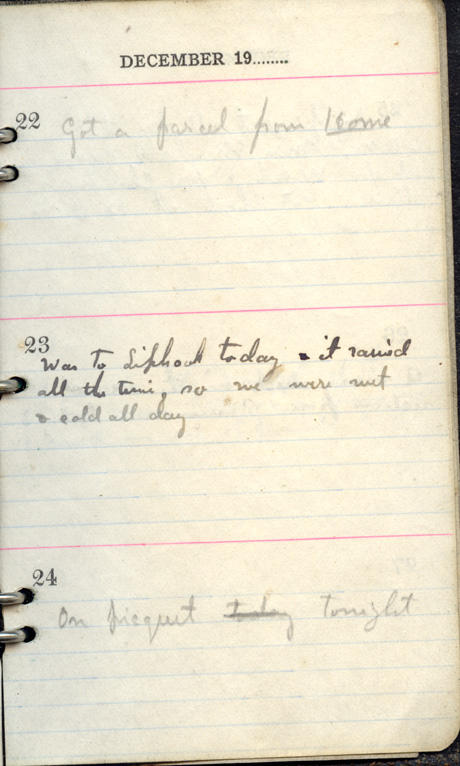 DECEMBER 19........
22
Got a parcel from Home
23
Was to Liphook today & it rained
all the time, so we were wet
& cold all day
24
On picquet today tonight